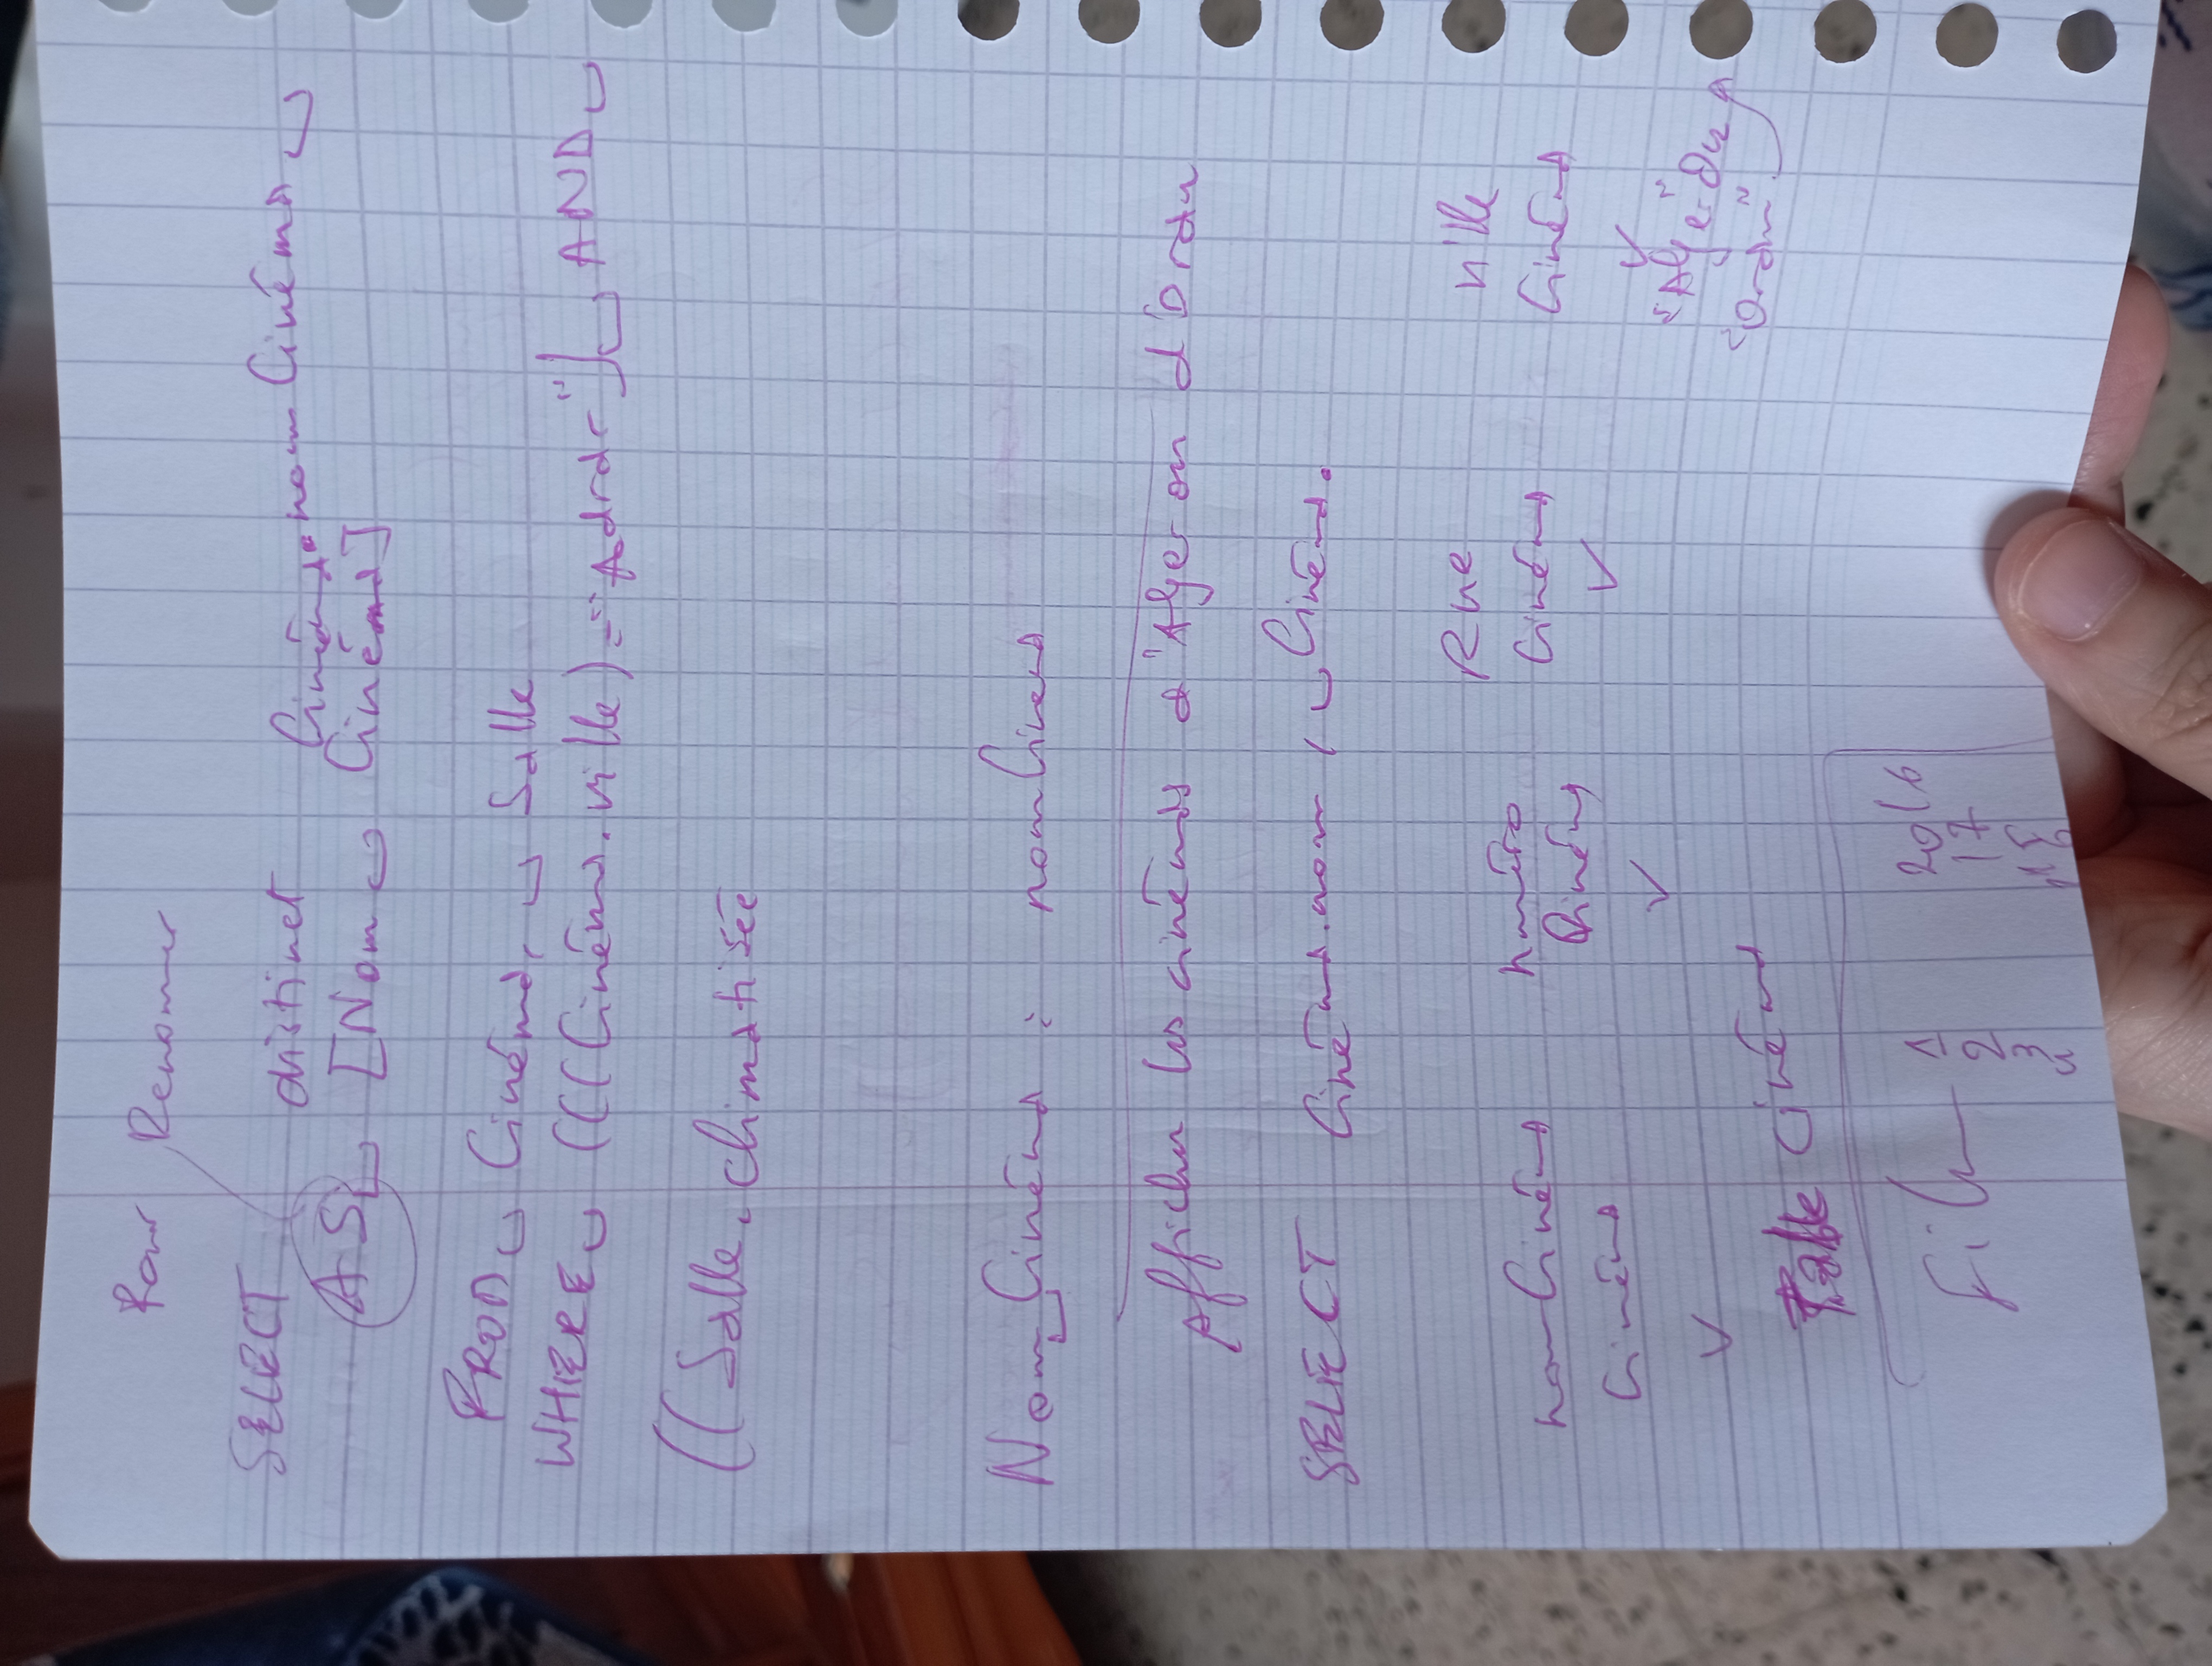 Pour Renomer
SELECT distinct Cinéma.nomCinéma
AS [Nom Cinéma]
FROM Cinéma, Salle
WHERE (((Cinéma.ville)="Adrar") AND
((Salle.climatisée
Nom Cinéma : nomCinéma
Afficher les cinémas d'Alger ou d'Oran
SELECT Cinéma.nom, Cinéma.
nomCinéma numéro Rue ville
Cinéma Cinéma Cinéma Cinéma
"Alger" Ou
"Oran"
Table Cinéma
Film 1 2016
2 17
3 15
4